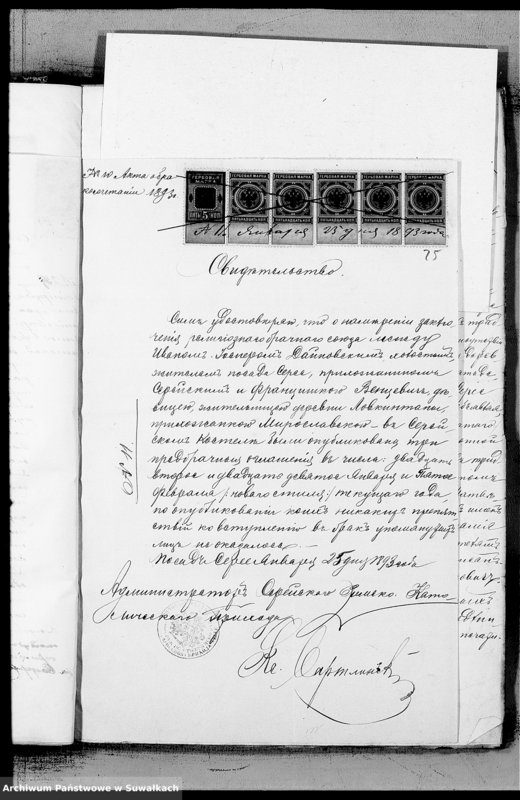 К № 10 Акта обра
косочетанія 1893 г.
ГЕРБОВАЯ МАРКА ПЯТЬ 5 КОП.
ГЕРБОВАЯ МАРКА ПЯТЬНАДЦАТЬ КОП.
ГЕРБОВАЯ МАРКА ПЯТЬНАДЦАТЬ КОП.
ГЕРБОВАЯ МАРКА ПЯТЬНАДЦАТЬ КОП.
ГЕРБОВАЯ МАРКА ПЯТЬНАДЦАТЬ КОП.
ГЕРБОВАЯ МАРКА ПЯТЬНАДЦАТЬ КОП.
№ 11. Января 25 дня 1893 года
75
Свидѣтельство.
Симъ удостовѣряю, что о намѣреніи заклю
ченія религіознаго брачнаго союза между
Иваномъ Гаспером Дайновскимъ холостымъ,
жителемъ посада Серее, прихожаниномъ
Серейскимъ и Францишкою Венцевичъ, дѣ
вицею, жительницею деревни
прихожанкою Мирославскою – въ Серей
скомъ Костелѣ были опубликованы три
предбрачныя оглашенія въ числа: двадцать
второе и двадцать девятое Января и Пятое
февраля /новаго стиля/ текущаго года
по опубликованіи коихъ никакихъ препят
ствій ко вступленію въ бракъ упомянутыхъ
лицъ не оказалось. –
Посадъ Серее Января 25 дня 1893 года
№ 11.
Администраторъ Серейскаго Римско-Като
лическаго Прихода
Кс.
Archiwum Państwowe w Suwałkach